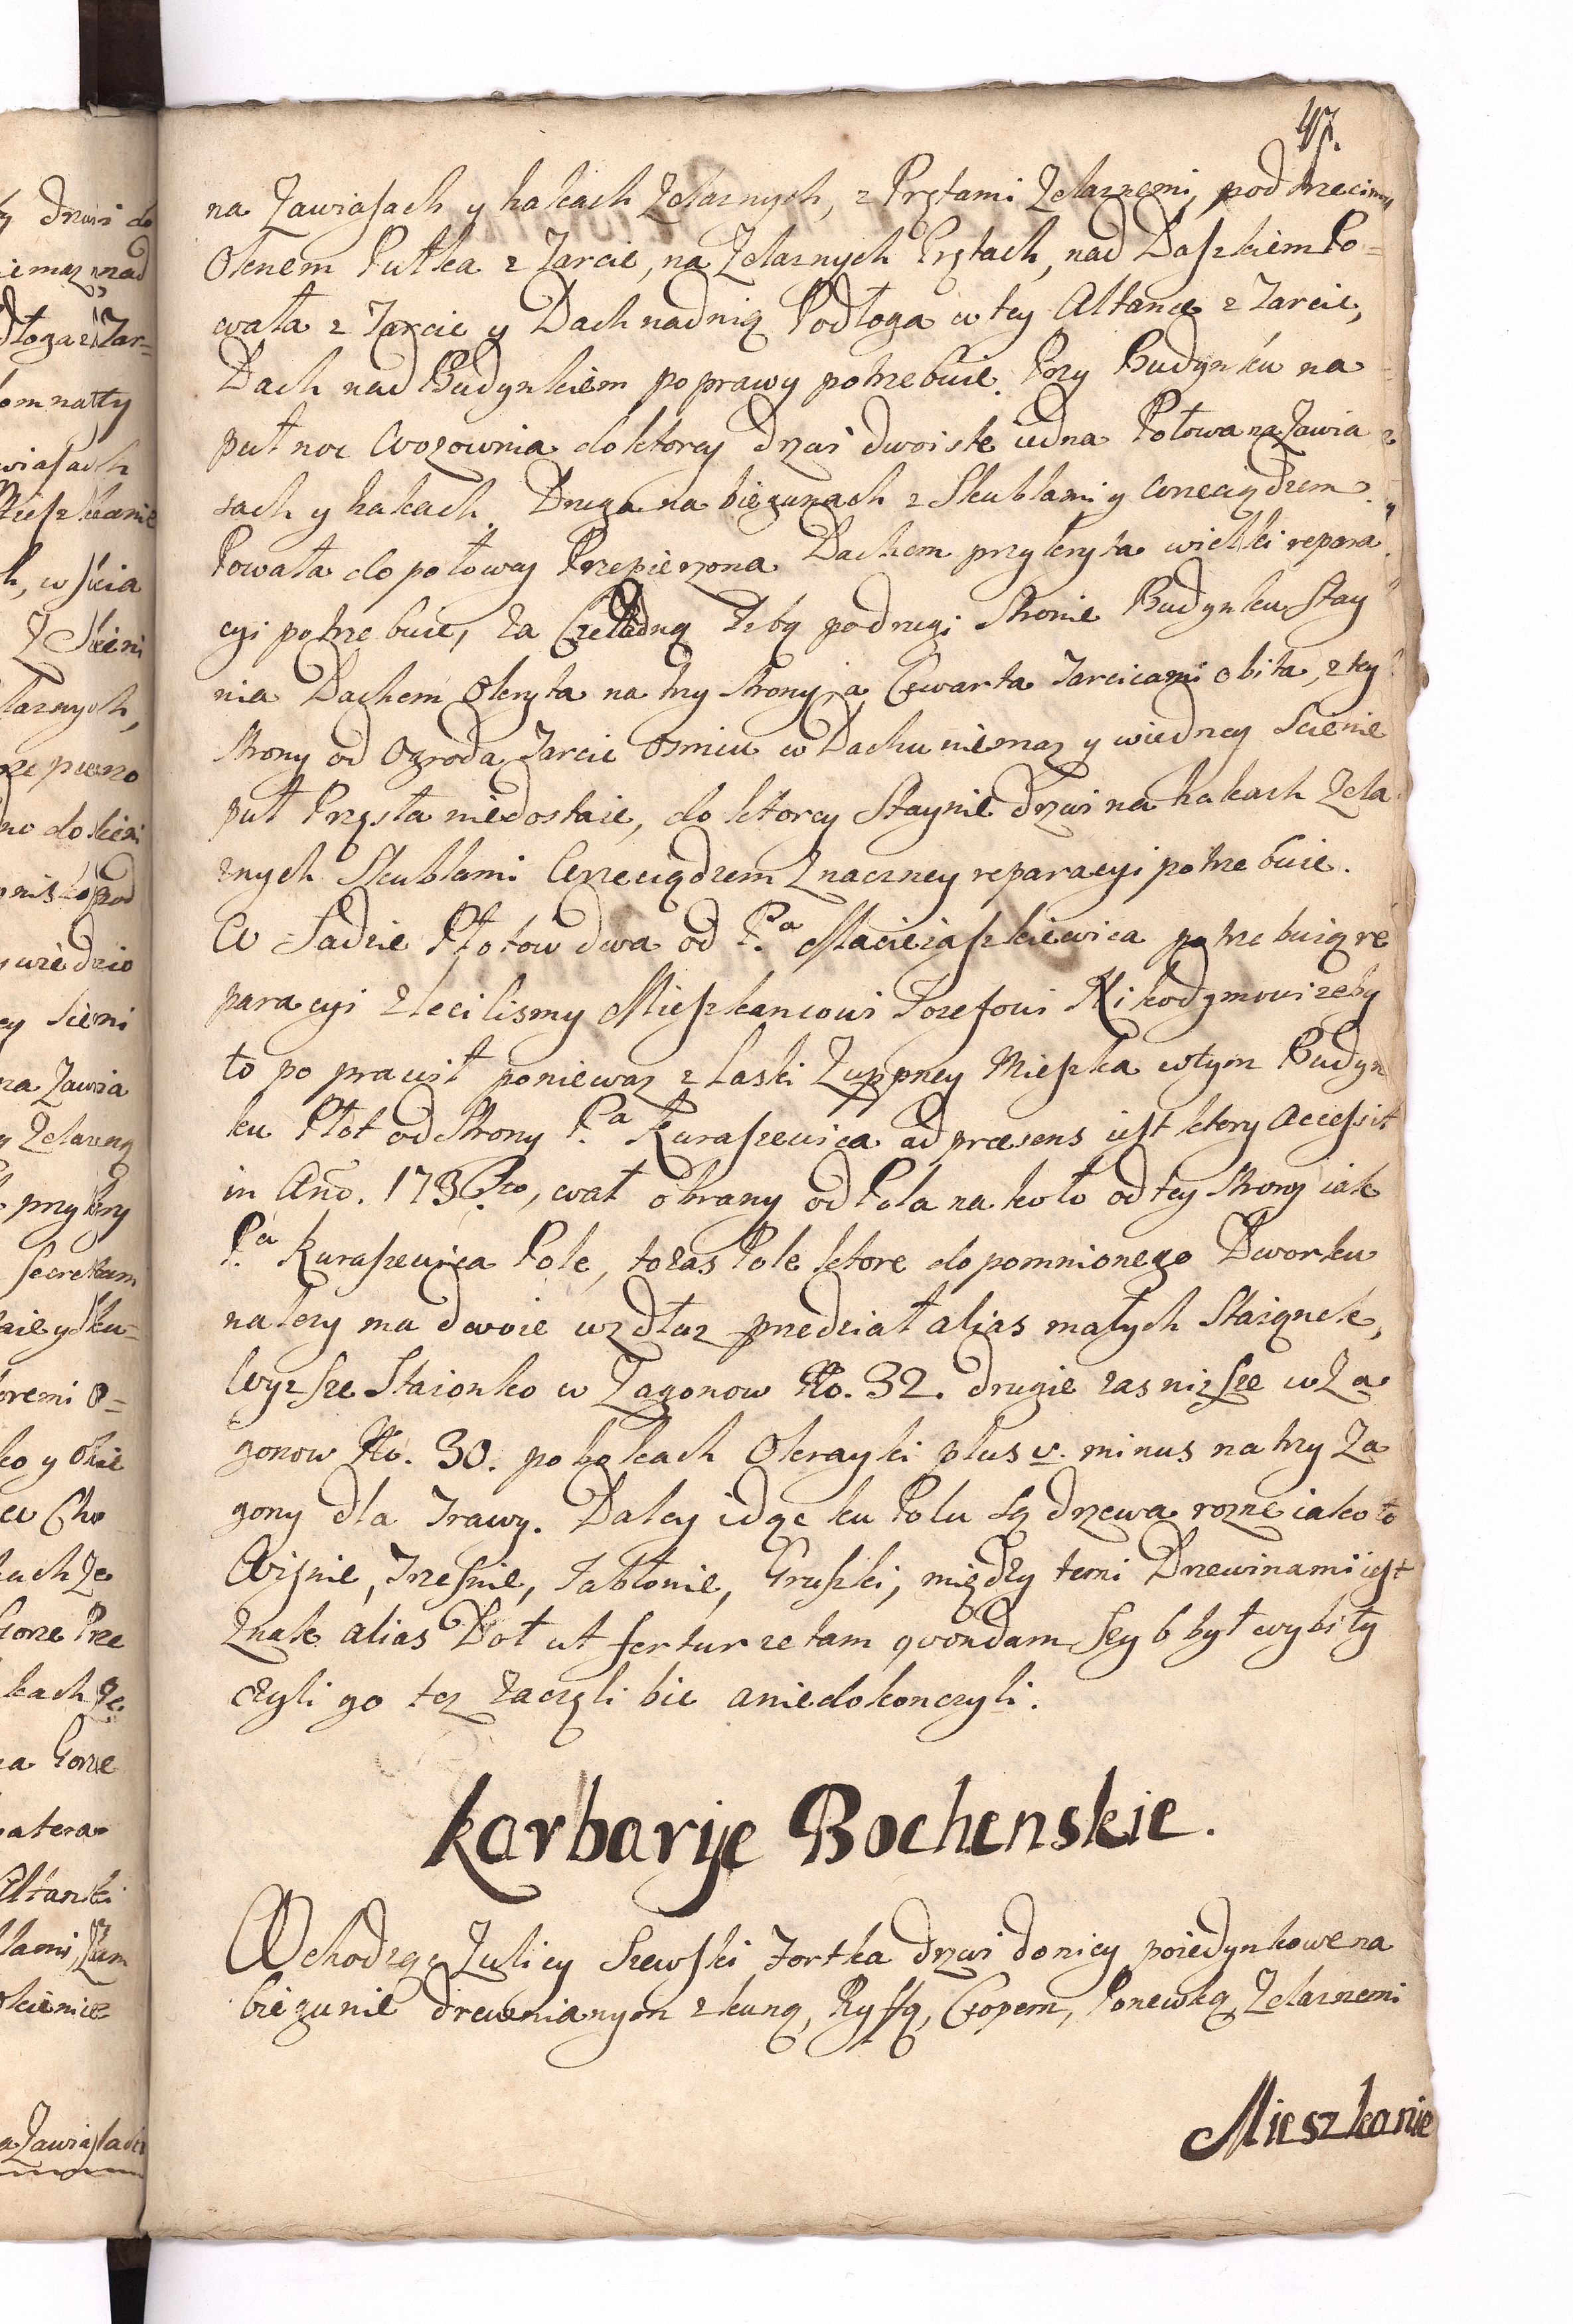 47.
na Zawiasach y hakach Zelaznych, z Prętami Zelaznemi, pod trzecim
Oknem Pułka z Tarcic, na Zelaznych Prętach, nad Daszkiem Po=
wała z Tarcic y Dach nadnią Podłoga w tey Altance z Tarcic,
Dach nad Budynkiem poprawy potrzebuie. Przy Budynku na
puł noc Wozownia do ktorey drzwi dwoiste iedna Połowa na Zawia
sach y hakach. Druga na biegunach z Skublami y Wrzeciądzem.
Powała do połowy Przepierzona Dachem przykryta wielki repara
cyi potrzebuie, za Czeladną Izbą podrugi Stronie Budynku Stay
nia Dachem Okryta na trzy strony, a Czwarta Tarcicami obita, z tey
strony od Ogroda Tarcic osmiu w Dachu niemasz y wiedney Scienie
puł Przęsła niedostaie, do ktorey Staynie drzwi na hakach Zela
znych Skublami Wrzeciądzem Znaczney reparacyi potrzebuie.
W Sadzie Płotow dwa od P.a Macieiaszkiewica potrzebuią re
paracyi zlecilismy Mieszkancowi Iozefowi Nikodymowi zeby
to poprawił poniewaz z Laski Zuppney Mieszka wtym Budyn
ku Płot od Strony P.a Kuraszewica ad præsens iest ktory Accessit
in Año. 1736to, wał obrany od Pola na koło od tey strony iak
P.a Kuraszewica Pole, tozas Pole ktore do pomnionego Dworku
nalezy ma dwoie wzdłuz przedział alias małych Staiąnek,
Wyzsze Staionko w Zagonow No. 32. drugie zas nizsze w Za
gonow No. 30. po bokach Okrayki plus v. minus na trzy Za
gony dla Trawy. Daley idąc ku Polu są drzewa rozne iako to
Wisnie, Trzesnie, Iabłonie, Gruszki, między temi Drzewinami iest
Znak alias Doł ut fertur ze tam qvondam Seyb był wybity
czyli go tez zaczęli bic aniedokonczyli.
Karbaryje Bochenskie.
Wchodząc Zulicy Szewski Fortka drzwi do niey poiedynkowe na
biegunie drewnianym z kuną, Ryffą, Czopem, Ponewką Zelaznemi
Mieszkanie